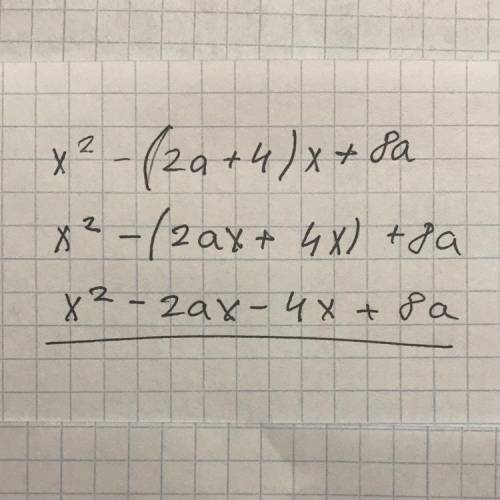 x² - (2a + 4)x + 8a
x² - (2ax + 4x) + 8a
x² - 2ax - 4x + 8a